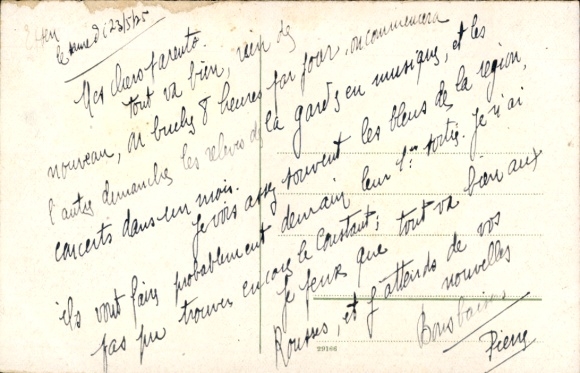 le samedi 23/5/25
Mes chers parents.
tout va bien, rien de
nouveau, on buche 8 heures par jour, on commencera
l'autre dimanche les relèves de la garde en musique, et les
concerts dans un mois.
Je vois assez souvent les bleus de la région,
ils vont faire probablement demain leur 1ère sortie. Je n'ai
pas pu trouver encore le Constant;
Je pense que tout va bien aux
Rousses, et j'attends de vos
nouvelles
Bons baisers
Pierre
29166